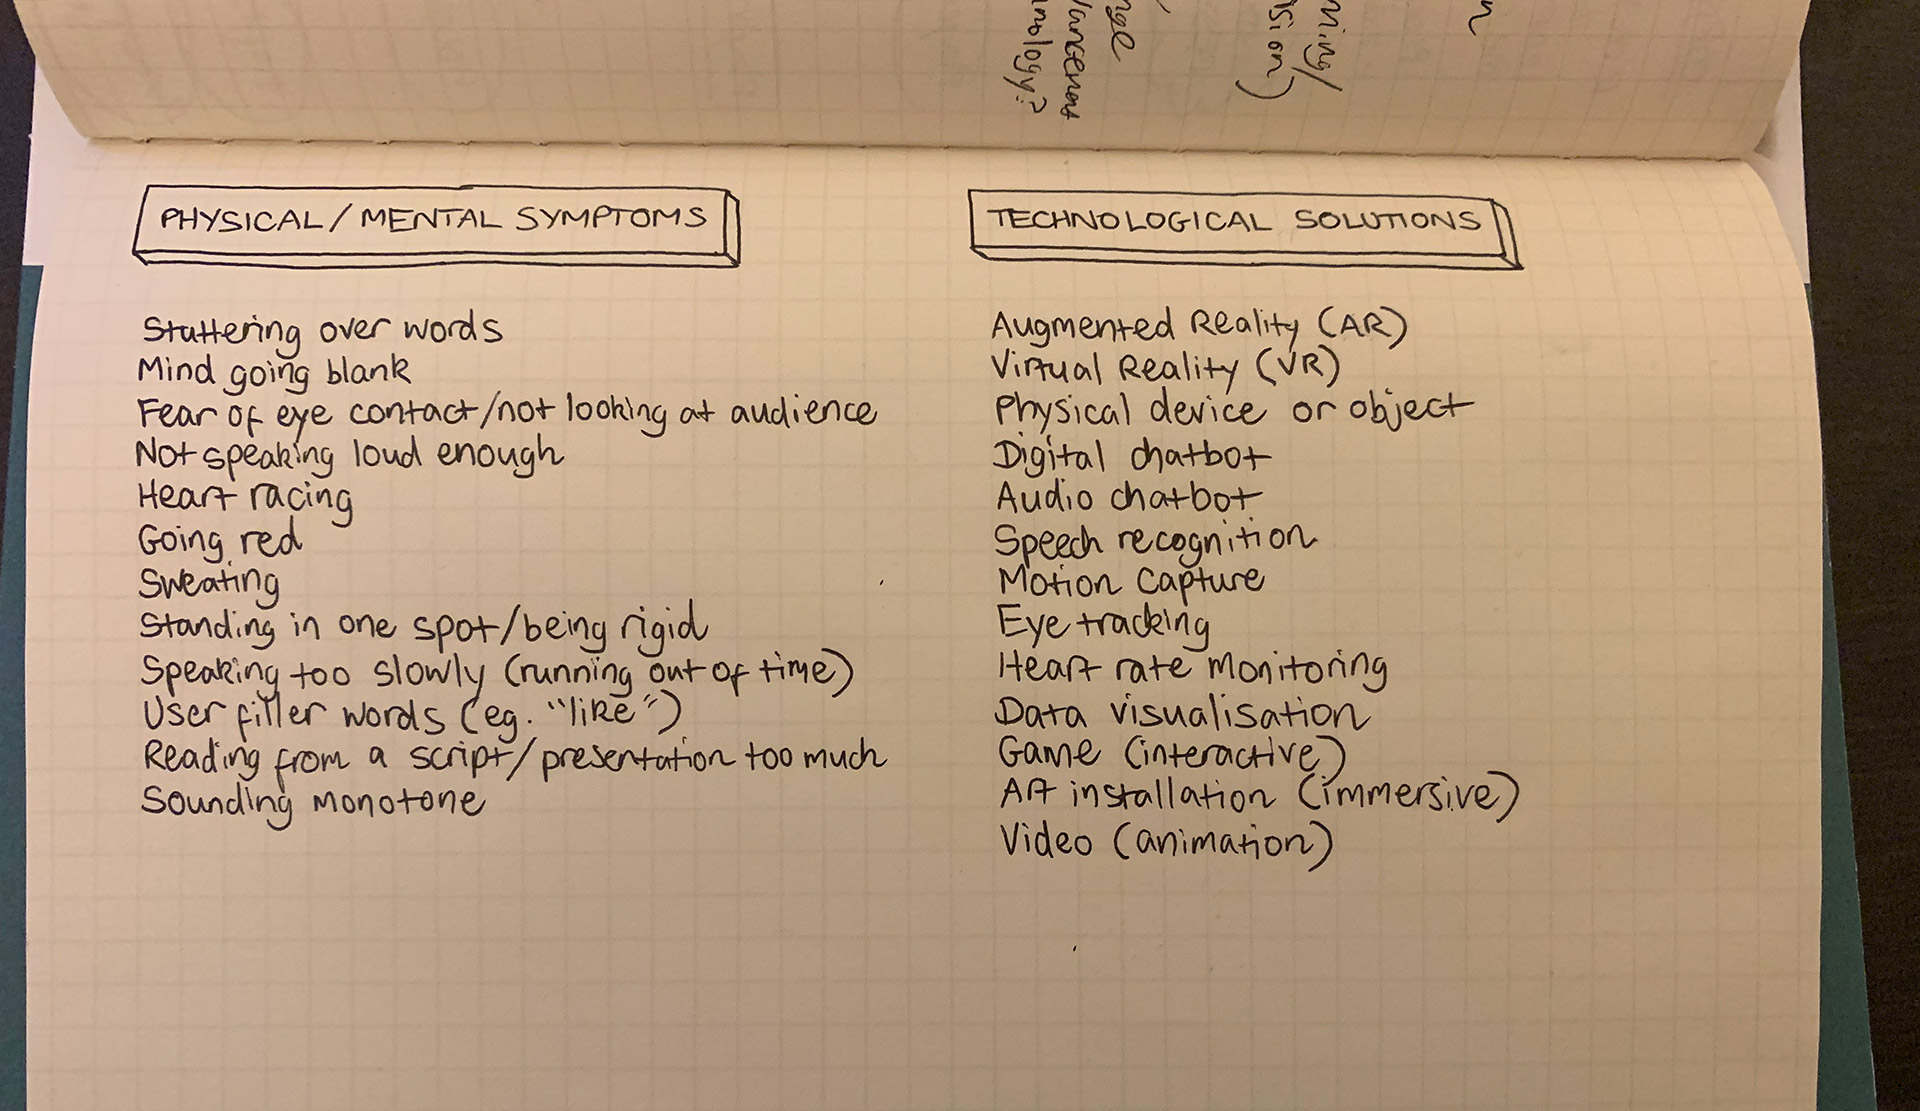 ning/
sion)
nge
vancement
nology?
PHYSICAL/MENTAL SYMPTOMS
Stuttering over words
Mind going blank
Fear of eye contact/not looking at audience
Not speaking loud enough
Heart racing
Going red
Sweating
Standing in one spot/being rigid
Speaking too slowly (running out of time)
User filler words (eg. "like")
Reading from a script/presentation too much
Sounding monotone
TECHNOLOGICAL SOLUTIONS
Augmented Reality (AR)
Virtual Reality (VR)
Physical device or object
Digital chatbot
Audio chatbot
Speech recognition
Motion Capture
Eye tracking
Heart rate monitoring
Data visualisation
Game (interactive)
Art installation (immersive)
Video (animation)